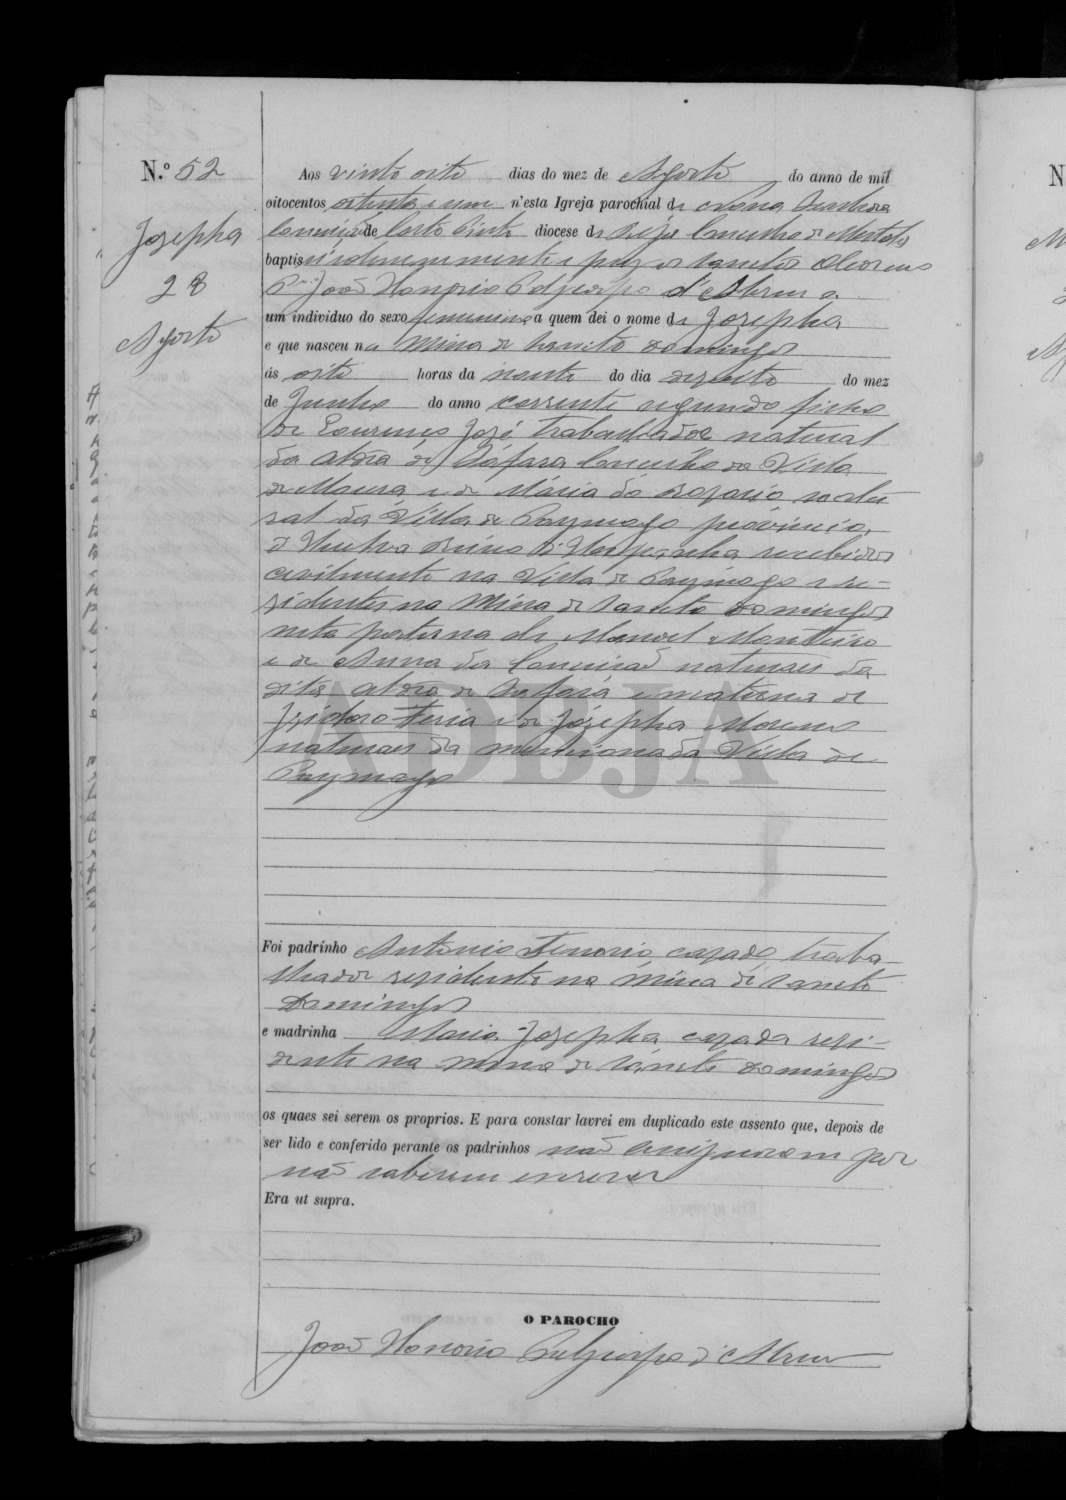 N.º 52
Josepha
28
Agosto
Aos vinte oito dias do mez de Agosto do anno de mil
oitocentos oitenta e um n'esta Igreja parochial de Nossa Senhora
Conceição de Corte Pinto diocese de Beja Concelho de Mertola
baptisei solemnemente e puz os sanctos Oleos eu
P.e João Honorio Polycarpo d'Abreu a
um individuo do sexo femenino a quem dei o nome de Josepha
e que nasceu na Mina de Sancto Domingos
ás oito horas da noute do dia dezoito do mez
de Junho do anno corrente segundo filho
de Lourenço José trabalhador natural
da Aldea de Sáfara Concelho da Villa
de Moura e de Maria do Rozario natu
ral da Villa de Paymogo provincia
d'Huelva Reino d'Hespanha recebidos
civilmente na Villa de Paymogo e re-
zidentes na Mina de Sancto Domingos
neta paterna de Manoel Monteiro
e de Anna da Conceição naturaes da
dita Aldea de Safara e materna de
Izidoro Feria e de Josepha Moreno
naturaes da mencionada Villa de
Paymogo
ADBJA
Foi padrinho Antonio Tenorio cazado traba-
lhador rezidente na Mina de Sancto
Domingos
e madrinha Maria Josepha cazada rezi-
dente na mina de Sancto Domingos
os quaes sei serem os proprios. E para constar lavrei em duplicado este assento que, depois de
ser lido e conferido perante os padrinhos não assignaram por
não saberem escrever
Era ut supra.
O PAROCHO
João Honorio Polycarpo d'Abreu